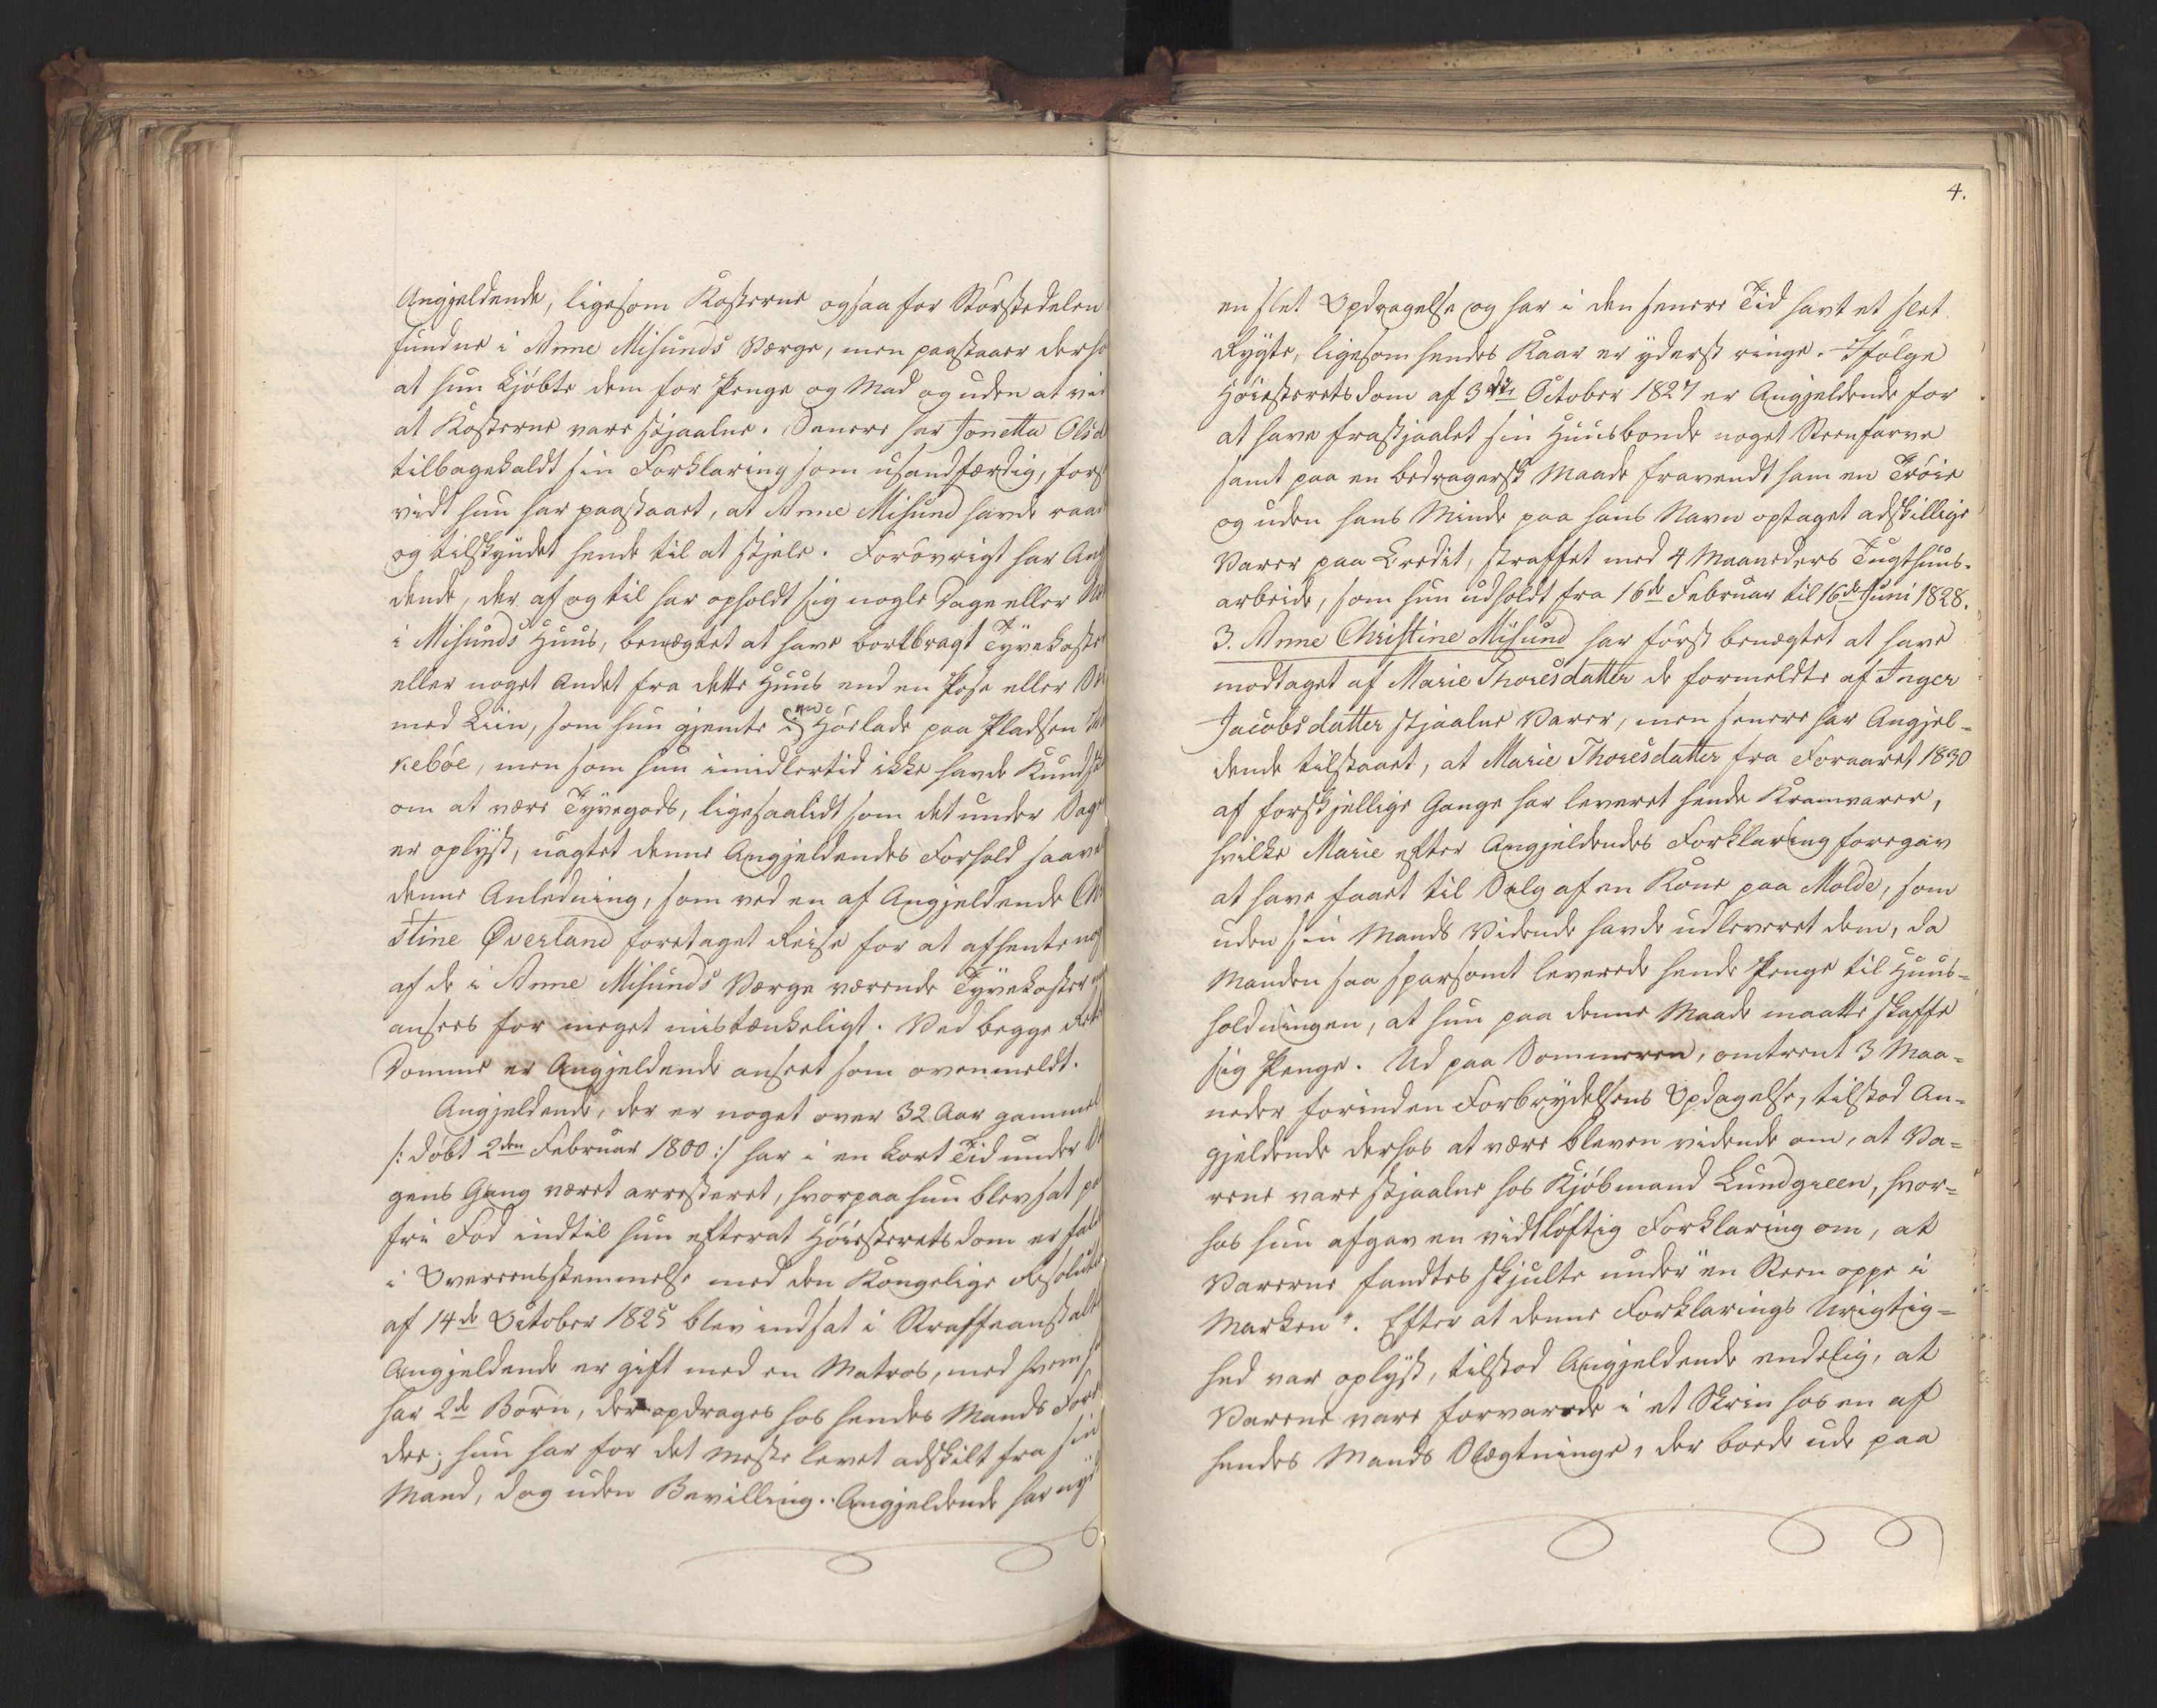 Angjeldende, ligesom Kosterne ogsaa for Størstedelen
fundne i Anne Misunds Værge, men paastaaer derho
at hun kjøbte dem for Penge og Mad og uden at vid
at Kosterne vare stjaalne. Senere har Jonetta Olsd
tilbagekaldt sin Forklaring som usandfærdig, fors
vidt hun har paastaaet, at Anne Misund havde raad
og tilskyndet hende til at stjele. Forøvrigt har Ang
dende, der af og til har opholdt sig nogle Dage eller
i Misunds Huus, benægtet at have bortbragt Tyvekoster
eller noget andet fra dette Huus end en Pose eller
med Liin, som hun gjemte i Høelade paa Pladsen
kebøe, men som hun imidlertid ikke havde Kundsk
om at være Tyvegods, ligesaalidt som det under Sag
er oplyst, uagtet denne Angjeldendes Forhold saave
denne Anledning, som ved en af Angjeldende
stine Øverland foretaget Reise for at afhente nog
af de i Anne Misunds Værge værende Tyvekoster
ansees for meget mistænkeligt. Ved begge Rets
Domme er Angjeldende anseet som ovenmeldt.
Angjeldende, der er noget over 32 Aar gammel
/: døbt 2den Februar 1800 :/ har i en kort Tid under
gens Gang været arresteret, hvorpaa hun blev sat pa
fri Fod indtil hun efterat Høiesteretsdom er fald
i Overeensstemmelse med den Kongelige Resoluti
af 14de October 1825 blev indsat i Straffeanstalt
Angjeldende er gift med en Matros, med hvem
har 2de Børn, der opdrages hos hendes Mands For
dre; hun har for det meste levet adskilt fra sin
Mand, dog uden Bevilling. Angjeldende har nyd
4.
en slet Opdragelse og har i den senere Tid havt et slet
Rygte, ligesom hendes Kaar er yderst ringe. Ifølge
Høiesteretsdom af 3die October 1827 er Angjeldende for
at have frastjaalet sin Huusbonde noget Steenfarve
samt paa en bedragersk Maade fravendt ham en Trøie
og uden hans Minde paa hans Navn optaget adskillige
Varer paa Credit, straffet med 4 Maaneders Tugthuus-
arbeide, som hun udholdt fra 16de Februar til 16de Juni 1828.
3. Anne Christine Misund har først benægtet at have
modtaget af Marie Thoresdatter de formeldte af Inger
Jacobsdatter stjaalne Varer, men senere har Angjel-
dende tilstaaet, at Marie Thoresdatter fra Foraaret 1830
af forskjellige Gange har leveret hende Kramvarer,
hvilke Marie efter Angjeldendes Forklaring foregav
at have faaet til Salg af en Kone paa Molde, som
uden sin Mands Vidende havde udleveret dem, da
Manden saa sparsomt leverede hende Penge til Huus-
holdningen, at hun paa denne Maade maatte skaffe
sig Penge. Ud paa Sommeren, omtrent 3 Maa-
neder forinden Forbrydelsens Opdagelse, tilstod An-
gjeldende derhos at være bleven vidende om, at Va-
rene vare stjaalne hos Kjøbmand Lundgreen, hvor-
hos hun afgav en vidtløftig Forklaring om, at
Varerne fandtes skjulte under en Steen oppe i
Marken". Efter at denne Forklarings Urigtig-
hed var oplyst, tilstod Angjeldende endelig, at
Varene vare forvarede i et Skrin hos en af
hendes Mands Slægtninge, der boede ude paa